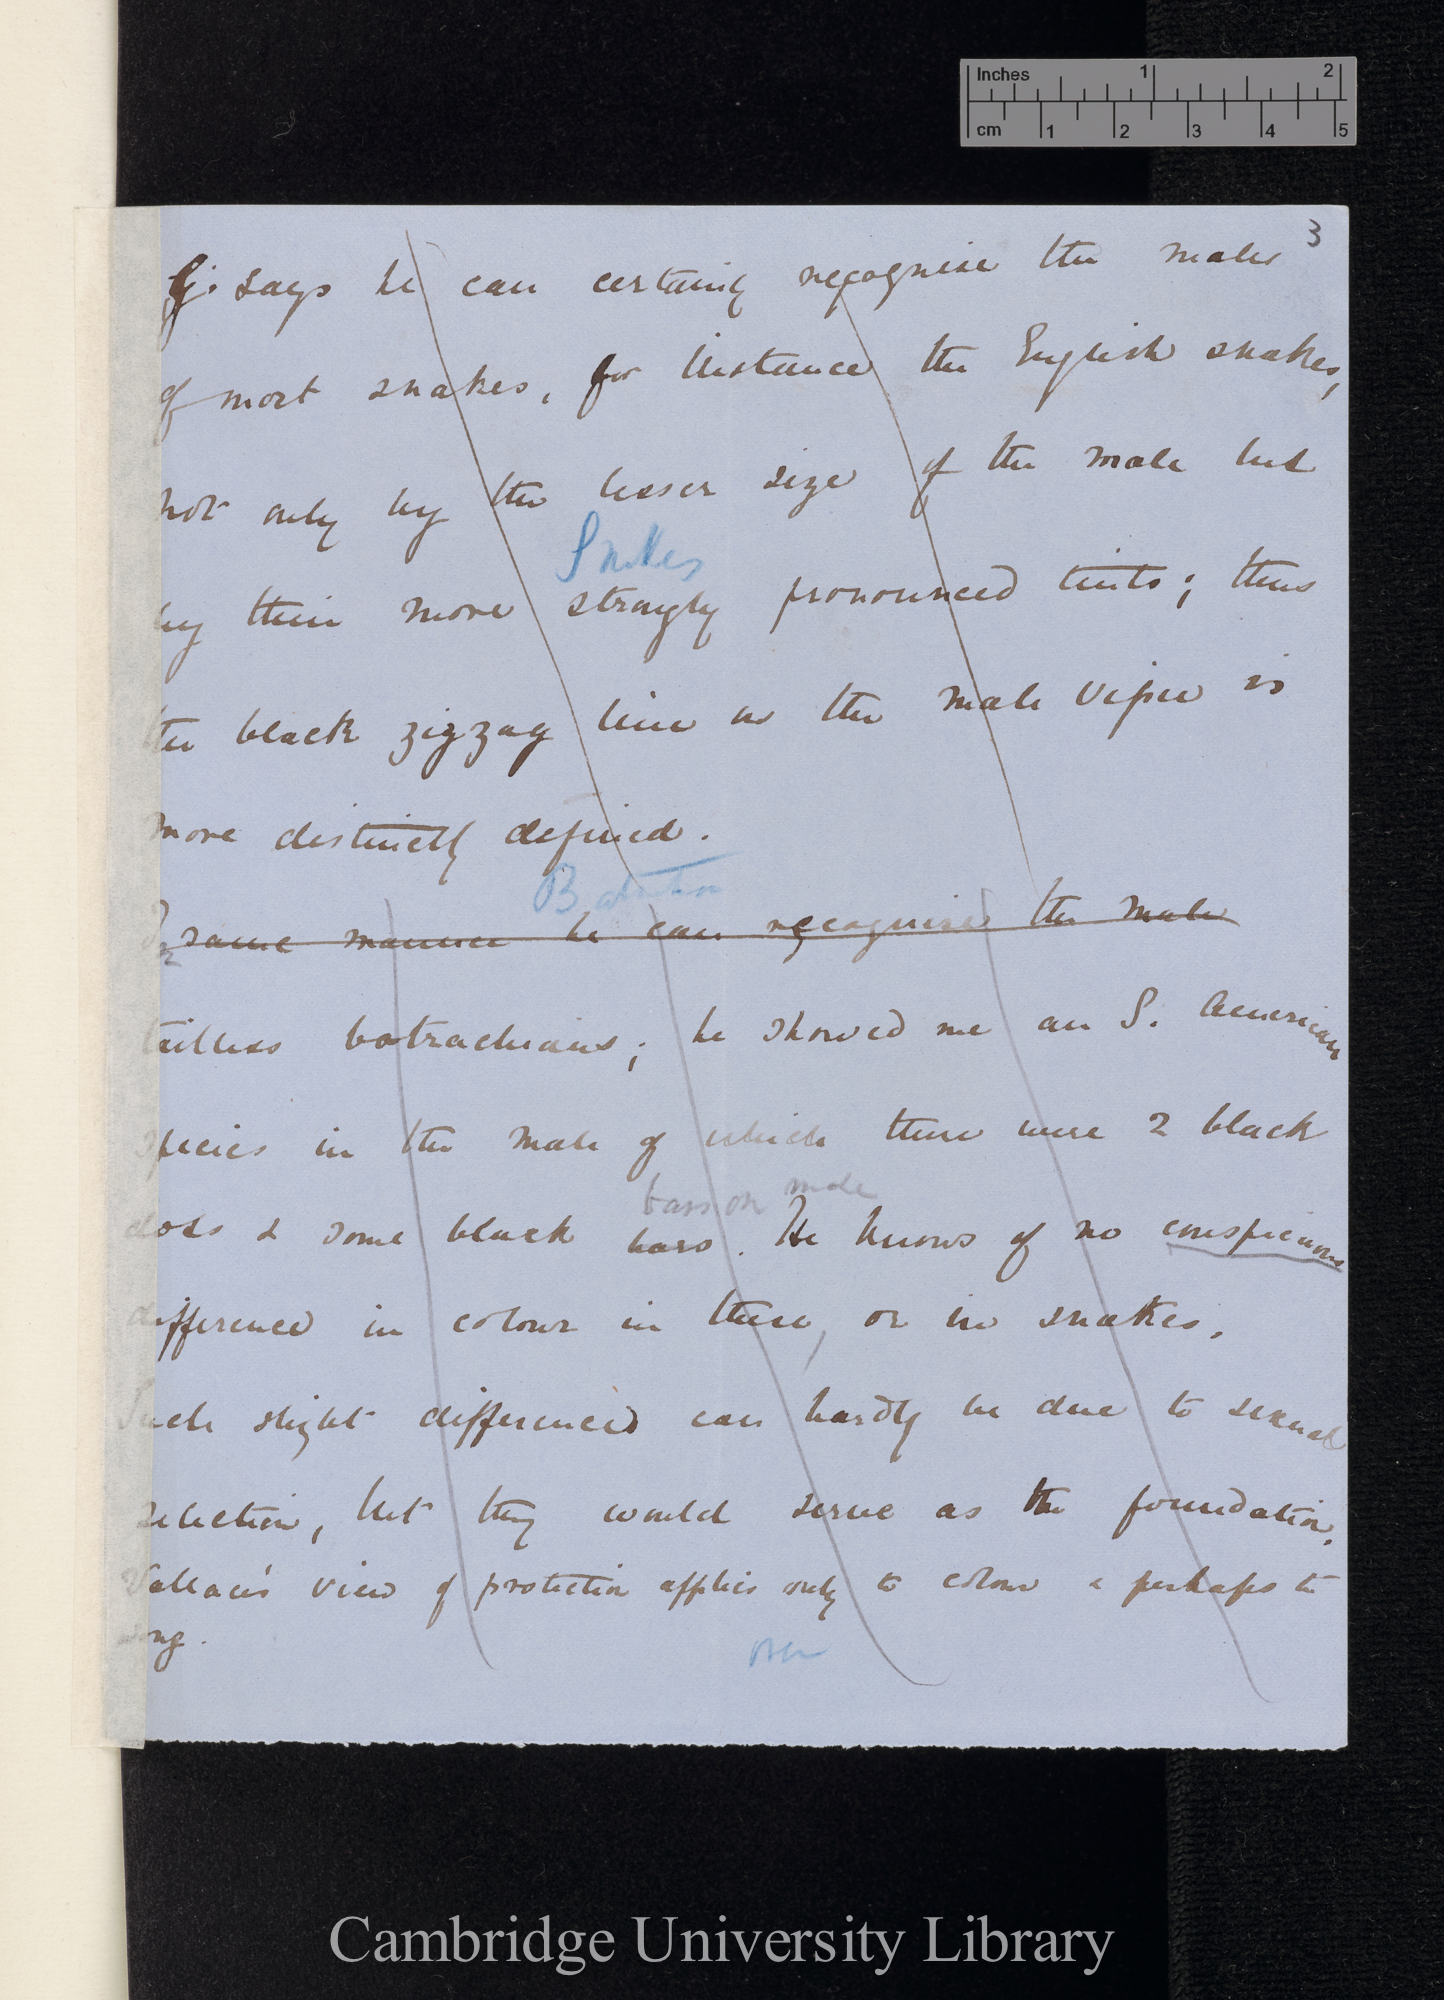 Inches 1 2
cm 1 2 3 4 5
3
G. says he can certainly recognise the males
of most snakes, for instance the English snakes,
not only by the lesser size of the male but
Snakes
by their more strongly pronounced tints; thus
the black zigzag line in the male viper is
more distinctly defined.
Batrachian
In same manner he can recognise the male
tailless batrachians; he showed me an S. American
species in the male of which there were 2 black
bars on male
dots & some black bars. He knows of no conspicuous
difference in colour in these, or in snakes.
Such slight differences can hardly be due to sexual
selection, but they would serve as the foundation.
Wallace's view of protection applies only to colour & perhaps to
song.
Cambridge University Library